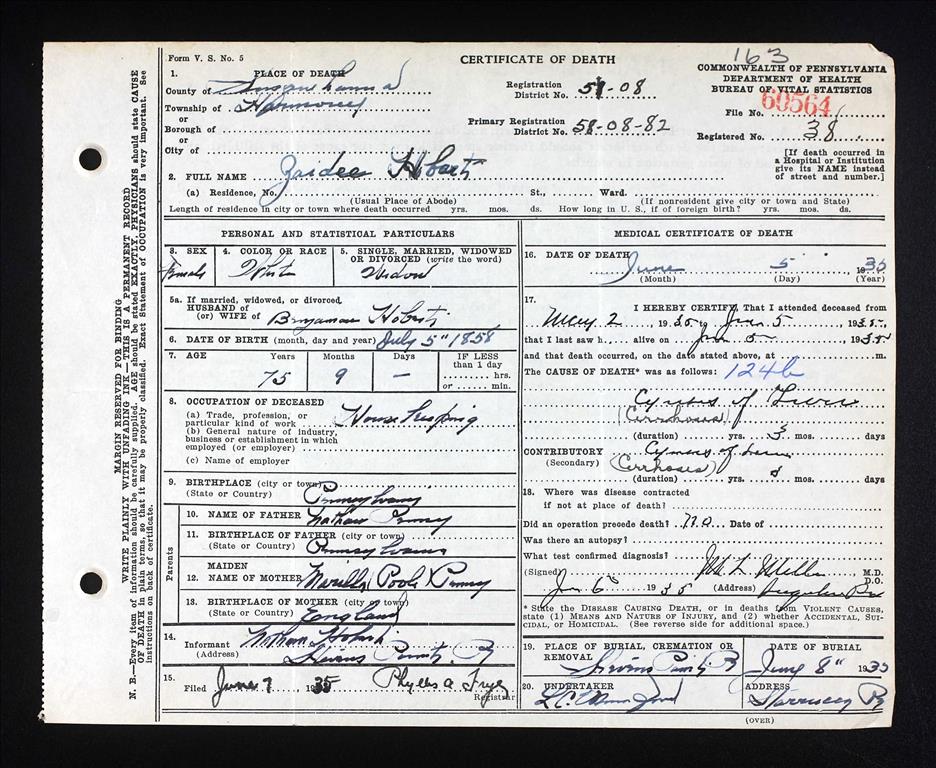 163
Form V. S. No. 5
CERTIFICATE OF DEATH
COMMONWEALTH OF PENNSYLVANIA
DEPARTMENT OF HEALTH
BUREAU OF VITAL STATISTICS
1. PLACE OF DEATH
County of Susquehanna
Township of Harmony
or
Borough of
or
City of
Registration District No. 58-08
Primary Registration District No. 58-08-82
File No. 60564
Registered No. 38
[If death occurred in a Hospital or Institution give its NAME instead of street and number.]
2. FULL NAME Zaidee Hobart
(a) Residence, No. St., Ward.
(Usual Place of Abode) (If nonresident give city or town and State)
Length of residence in city or town where death occurred yrs. mos. ds. How long in U. S., if of foreign birth? yrs. mos. days
MARGIN RESERVED FOR BINDING
WRITE PLAINLY WITH UNFADING INK—THIS IS A PERMANENT RECORD
N. B.—Every item of information should be carefully supplied. AGE should be stated EXACTLY. PHYSICIANS should state CAUSE
OF DEATH in plain terms, so that it may be properly classified. Exact Statement of OCCUPATION is very important. See
instructions on back of certificate.
PERSONAL AND STATISTICAL PARTICULARS
3. SEX
Female
4. COLOR OR RACE
White
5. SINGLE, MARRIED, WIDOWED OR DIVORCED (write the word)
Widow
5a. If married, widowed, or divorced
HUSBAND of
(or) WIFE of Benjaman Hobart
6. DATE OF BIRTH (month, day and year) July 5" 1858
7. AGE Years Months Days IF LESS than 1 day
75 9 — hrs. or min.
8. OCCUPATION OF DECEASED
(a) Trade, profession, or particular kind of work House keeping
(b) General nature of industry, business or establishment in which employed (or employer)
(c) Name of employer
9. BIRTHPLACE (city or town)
(State or Country) Pennsylvania
Parents
10. NAME OF FATHER Nathan
11. BIRTHPLACE OF FATHER (city or town)
(State or Country) Pennsylvania
MAIDEN
12. NAME OF MOTHER (Poole)
13. BIRTHPLACE OF MOTHER (city or town)
(State or Country) England
14.
Informant Nathan Hobart
(Address)
15.
Filed June 7 1935 Phyllis A Frye
Registrar
MEDICAL CERTIFICATE OF DEATH
16. DATE OF DEATH
June 5 1935
(Month) (Day) (Year)
17. I HEREBY CERTIFY, That I attended deceased from
May 2, 1935, to Jun 5 1935
that I last saw h alive on Jun 5 1935
and that death occurred, on the date stated above, at m.
The CAUSE OF DEATH* was as follows: 124b
of Liver
(Cirrhoses)
(duration) yrs. 3 mos. days
CONTRIBUTORY of
(Secondary) (Cirrhoses)
(duration) yrs. mos. days
18. Where was disease contracted
if not at place of death?
Did an operation precede death? no Date of
Was there an autopsy?
What test confirmed diagnosis?
(Signed) Miller M.D.
D.O.
Jun 6 1935 (Address)
* State the DISEASE CAUSING DEATH, or in deaths from VIOLENT CAUSES,
state (1) MEANS AND NATURE OF INJURY, and (2) whether ACCIDENTAL, SUI-
CIDAL, or HOMICIDAL. (See reverse side for additional space.)
19. PLACE OF BURIAL, CREMATION OR REMOVAL
DATE OF BURIAL
June 8" 1935
20. UNDERTAKER
ADDRESS
(OVER)